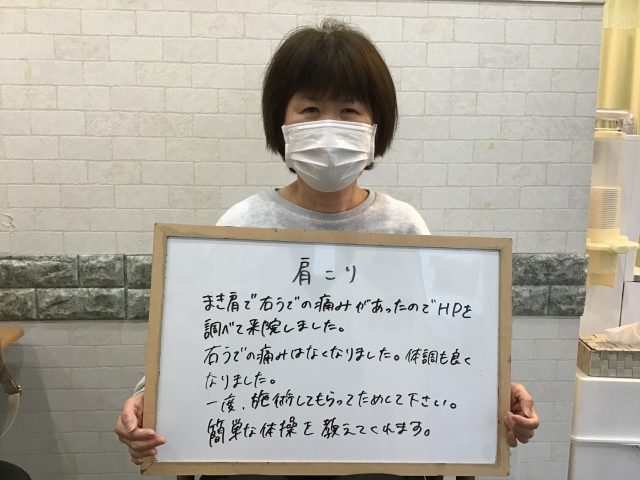 肩こり
まき肩で右うでの痛みがあったのでHPを
調べて来院しました。
右うでの痛みはなくなりました。体調も良く
なりました。
一度、施術してもらってためして下さい。
簡単な体操を教えてくれます。